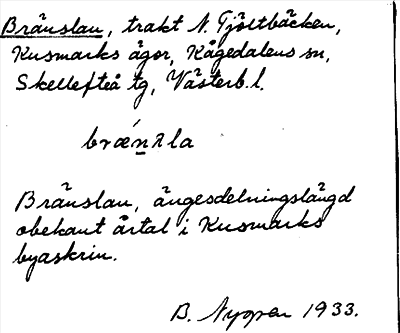 Bränslan, trakt N. Tjöltbäcken,
Kusmarks ägor, Kågedalens sn,
Skellefteå tg, Västerb. l.
Bränslan, ängesdelningslängd
obekant årtal i Kusmarks
byaskrin.
B. Nygren 1933.